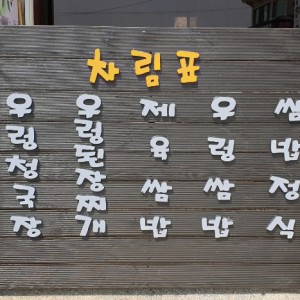 차림표
우렁청국장
우렁된장찌개
제육쌈밥
우렁쌈밥
쌈밥정식